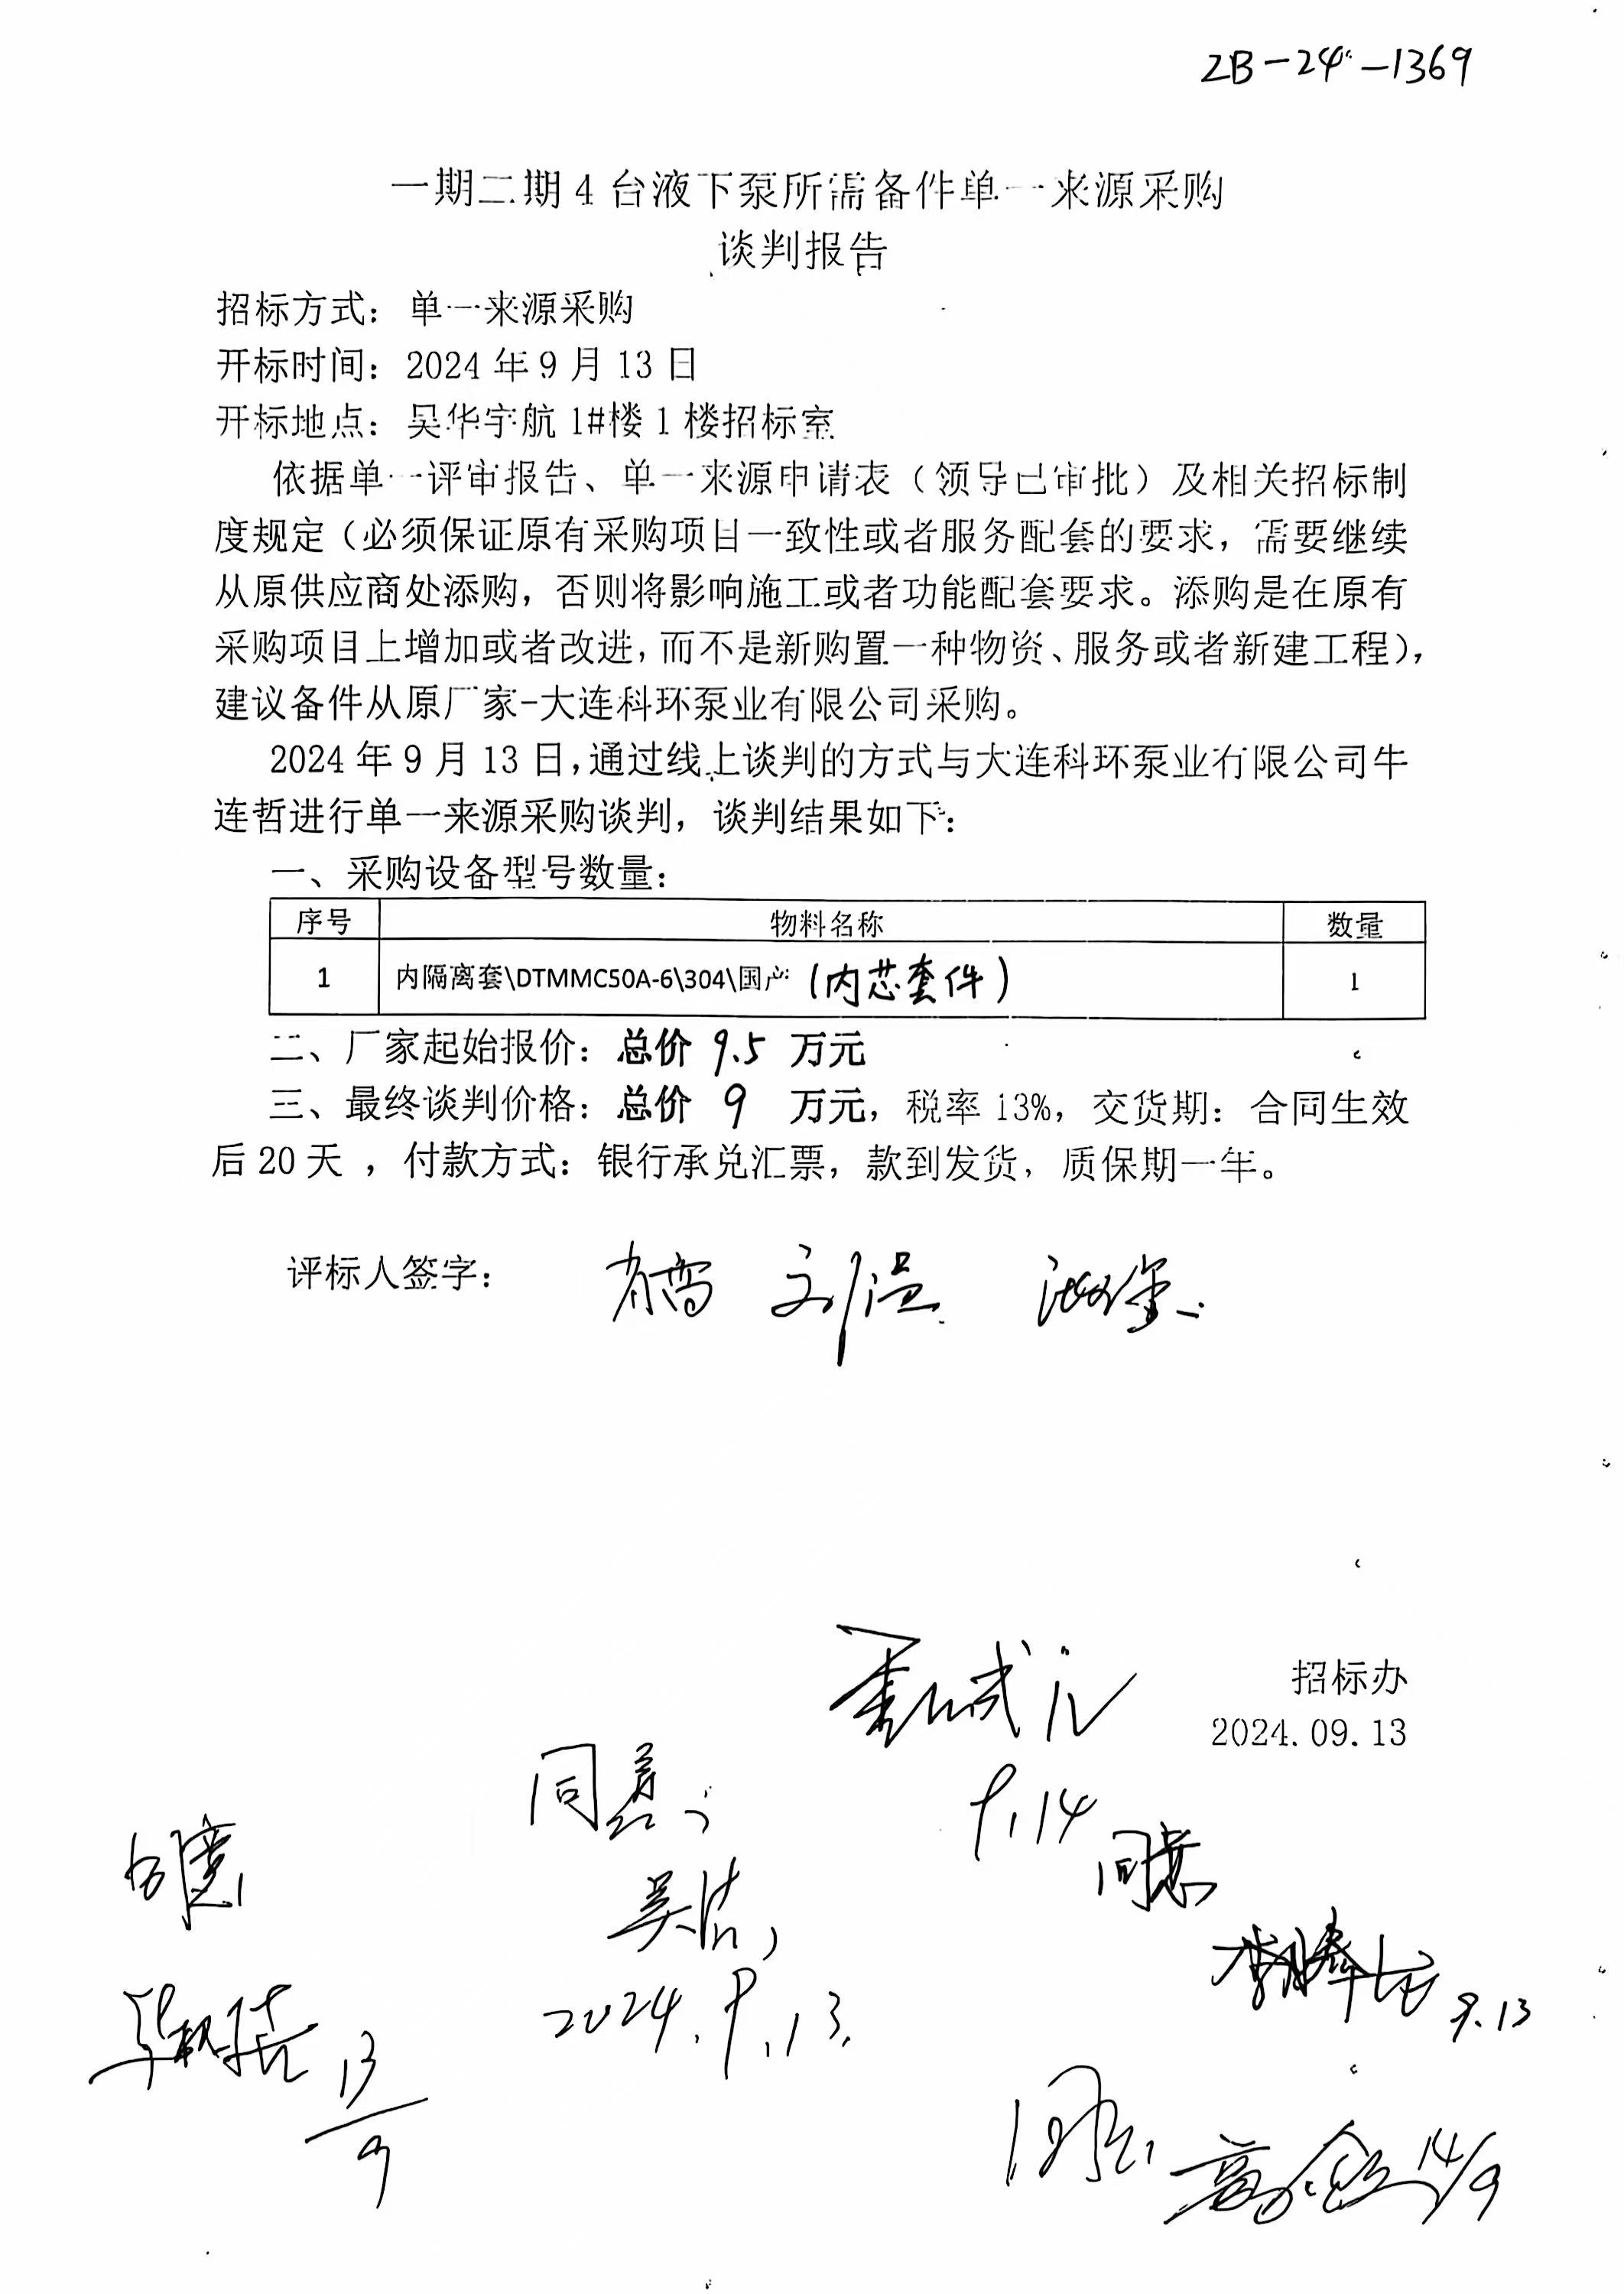 ZB-24-1369
一期二期4台液下泵所需备件单一来源采购
谈判报告
招标方式：单一来源采购
开标时间：2024年9月13日
开标地点：昊华宇航1#楼1楼招标室
依据单一评审报告、单一来源申请表（领导已审批）及相关招标制
度规定（必须保证原有采购项目一致性或者服务配套的要求，需要继续
从原供应商处添购，否则将影响施工或者功能配套要求。添购是在原有
采购项目上增加或者改进，而不是新购置一种物资、服务或者新建工程），
建议备件从原厂家-大连科环泵业有限公司采购。
2024年9月13日，通过线上谈判的方式与大连科环泵业有限公司牛
连哲进行单一来源采购谈判，谈判结果如下：
一、采购设备型号数量：
序号 物料名称 数量
1 内隔离套\DTMMC50A-6\304\国产（内芯套件） 1
二、厂家起始报价：总价 9.5 万元
三、最终谈判价格：总价 9 万元，税率13%，交货期：合同生效
后20天，付款方式：银行承兑汇票，款到发货，质保期一年。
评标人签字：
招标办
2024.09.13
9.14
同意
同意
同意
2024.9.13.
9.13
13/9
同意
14/9